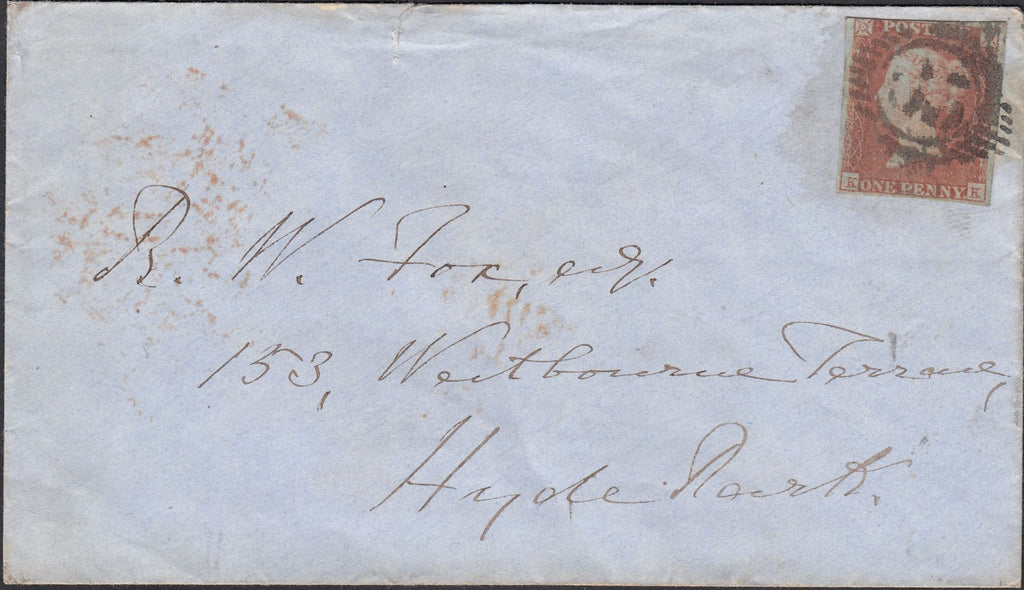 POSTAGE
K ONE PENNY. K
R. W. Fox, esq.
153, Westbourne Terrace,
Hyde Park.